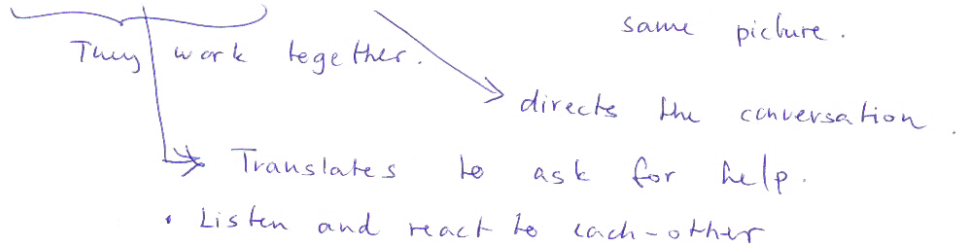 same picture.
They work tegether.
directs the conversation.
Translates to ask for help.
• Listen and react to each-other